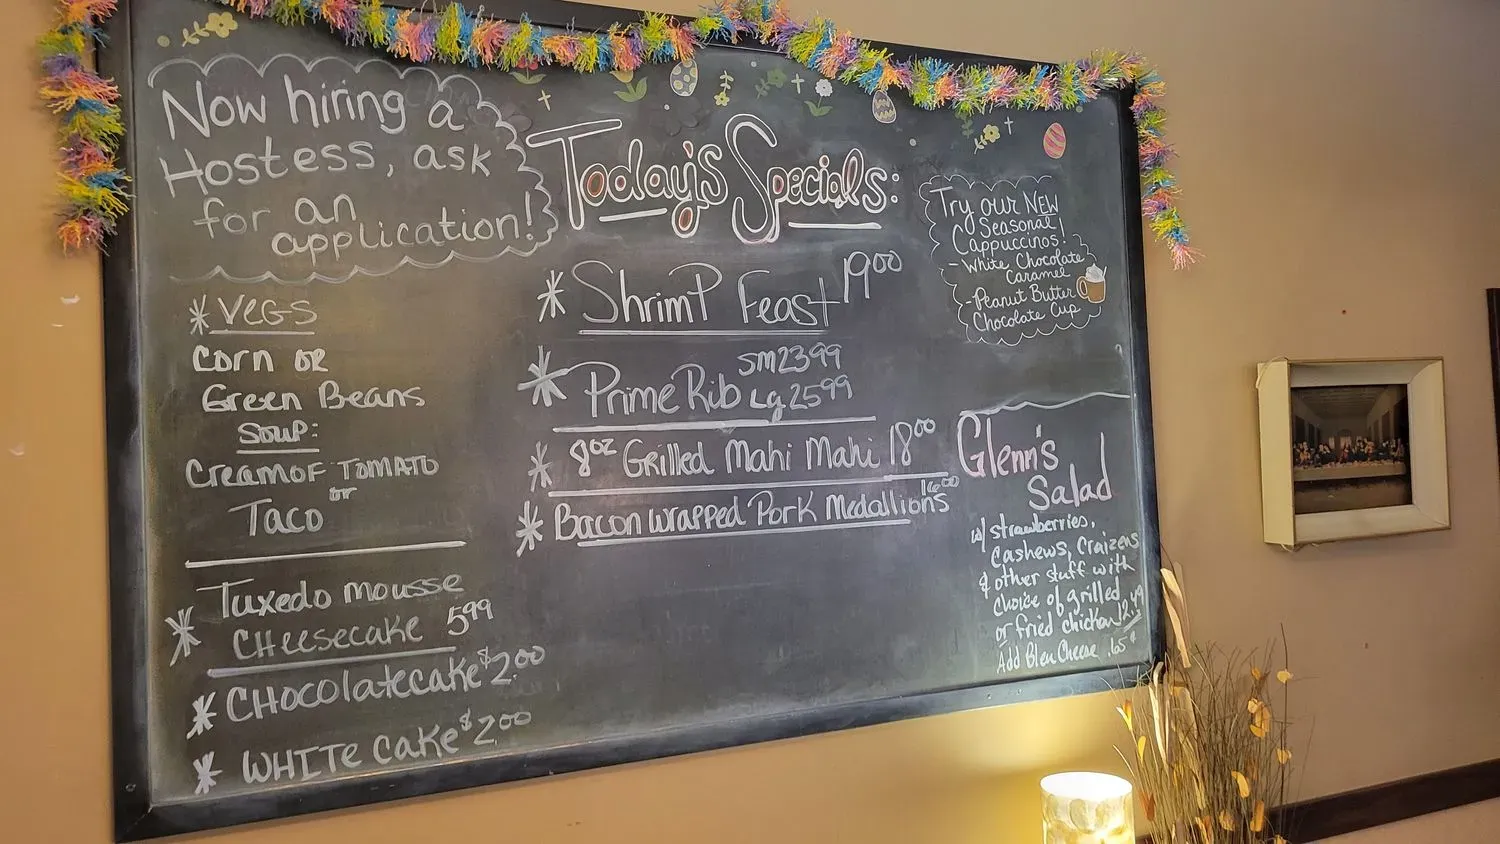 Now hiring a
Hostess, ask
for an
application!
* VEGS
Corn OR
Green Beans
SOUP:
Cream OF TOMATO
or
Taco
Tuxedo mousse
* CHeesecake 5.99
* CHOCOlatecake $2.00
* WHITe cake $2.00
Today's Specials:
* ShrimP Feast 19.00
sm 23.99
* Prime Rib Lg 25.99
* 8oz Grilled Mahi Mahi 18.00
* Bacon wrapped Pork Medallions 16.00
Try our NEW
Seasonal
Cappuccinos!
- White Chocolate
Caramel
- Peanut Butter
Chocolate Cup
Glenn's
Salad
w/ strawberries,
Cashews, Craizens
& other stuff with
choice of grilled
or fried chicken 12.49
Add Bleu Cheese .65¢